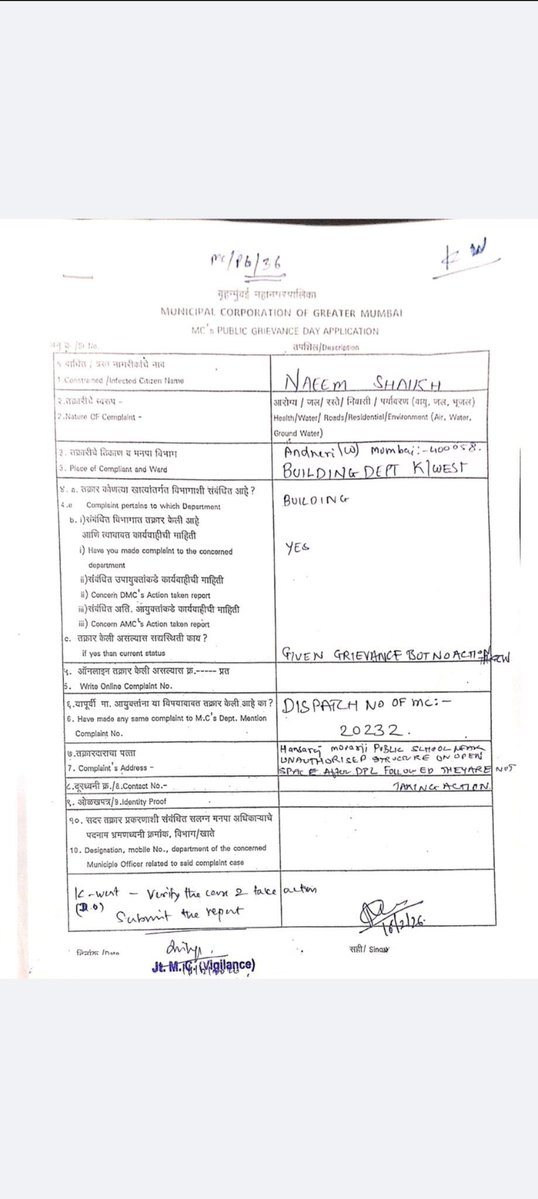 MC/PG/36
K W
बृहन्मुंबई महानगरपालिका
MUNICIPAL CORPORATION OF GREATER MUMBAI
MC's PUBLIC GRIEVANCE DAY APPLICATION
अनु क्र /Sr No.
तपशिल/Description
नागरीकांचे नाव
1.Constrained /Infected Citizen Name
NAEEM SHAIKH
२.तक्रारीचे स्वरूप -
2.Nature OF Complaint -
आरोग्य / जल/ रस्ते/ निवासी / पर्यावरण (वायु, जल, भूजल)
Health/Water/ Roads/Residential/Environment (Air, Water,
Ground Water)
३. तक्रारीचे ठिकाण व मनपा विभाग
3. Place of Compliant and Ward
Andheri (W) Mumbai:-400058.
BUILDING DEPT K/WEST
४. a. तक्रार कोणत्या खात्यांतर्गत विभागाशी संबंधित आहे ?
4.a Complaint pertains to which Department
BUILDING
b. i)संबंधित विभागात तक्रार केली आहे
आणि त्याबाबत कार्यवाहीची माहिती
i) Have you made complaint to the concerned
department
YES
ii)संबंधित उपायुक्तांकडे कार्यवाहीची माहिती
ii) Concern DMC's Action taken report
iii)संबंधित अति. आयुक्तांकडे कार्यवाहीची माहिती
iii) Concern AMC's Action taken report
c. तक्रार केली असल्यास सद्यस्थिती काय ?
if yes than current status
GIVEN GRIEVANCE BOT NO ACTION
५. ऑनलाइन तक्रार केली असल्यास क्र.----- प्रत
5. Write Online Complaint No.
६.यापूर्वी मा. आयुक्तांना या विषयाबाबत तक्रार केली आहे का ?
6. Have made any same complaint to M.C's Dept. Mention
Complaint No.
DISPATCH NO OF MC:-
20232.
७.तक्रारदाराचा पत्ता
7. Complaint's Address -
Hansaraj morarji PUBLIC SCHOOL
UNAUTHORISED STRUCTURE ON OPEN
SPACE After DPL FOLLOWED THEY ARE NOT
TAKING ACTION
८.दूरध्वनी क्र./8.Contact No.-
९. ओळखपत्र/9.Identity Proof
१०. सदर तक्रार प्रकरणाशी संबंधित सलग्न मनपा अधिकाऱ्याचे
पदनाम भ्रमणध्वनी क्रमांक, विभाग/खाते
10. Designation, mobile No., department of the concerned
Municiple Officer related to said complaint case
K-west - Verify the case & take action
Submit the report
दिनांक /Date
सही/ Sinae
Jt. M. C. (Vigilance)